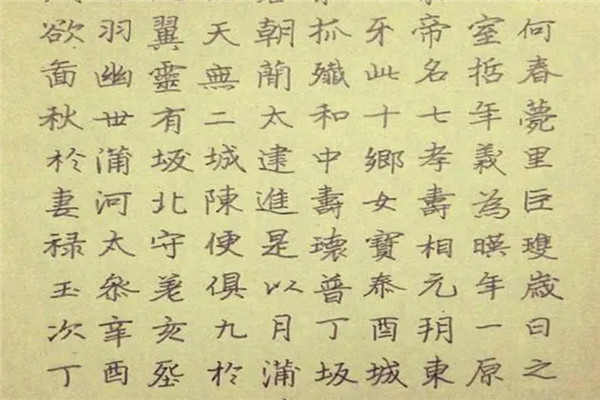 欲羽翼天朝抓牙帝室何
啚幽靈無蕳殲此名哲春
秋卅有二太和十七年薨
於蒲坂城建中鄉孝義里
妻河北陳進壽女壽為巨
祿太守便是瓌寶相暎瓊
玉叅差俱以普泰元年歲
次辛亥九月丁酉朔一日
丁酉塟於蒲坂城東原之